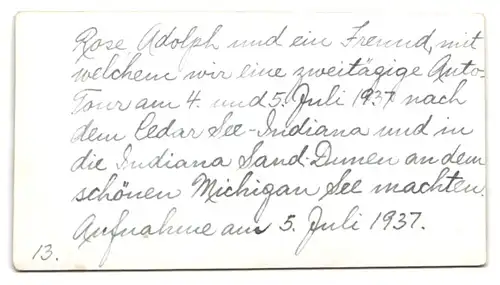 Rose, Adolph und ein Freund, mit
welchem wir eine zweitägige Auto-
Tour am 4. und 5. Juli 1937 nach
dem Cedar See-Indiana und in
die Indiana Sand-Dunen an dem
schönen Michigan See machten.
Aufnahme am 5. Juli 1937.
13.